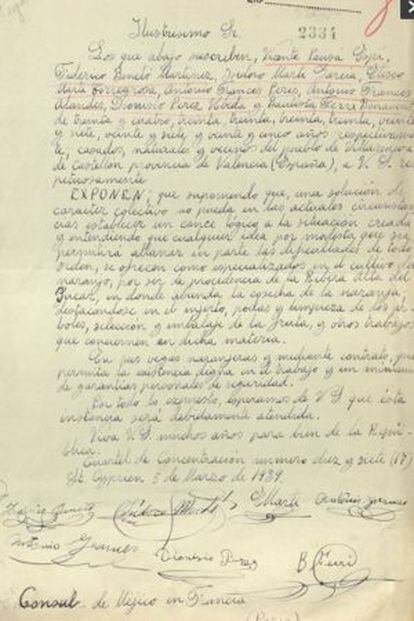 Ilustrisimo Sr.
2334
Los que abajo suscriben, Vicente
Federico Benetó Martinez, Isidoro Martí Garcia, Eliseo
Garrigrosa, Antonio Francés Peres, Antonio Francés
Dionisio Perez Ubeda y Bautista Ferri Benavent
de treinta y cuatro, treinta, treinta, treinta, veinte
y siete, veinte y siete, y veinte y cinco años respectivamen
te, casados, naturales y vecinos del pueblo de Villanueva
de Castellon provincia de Valencia (España), a V. S. res
petuosamente
EXPONEN; que suponiendo que, una solución de
caracter colectivo no pueda en las actuales circunstan
cias establecer un cauce lógico a la situacion creada
y entendiendo que cualquier idea por modesta que sea
permitirá allanar en parte las dificultades de todo
orden, se ofrecen como especializados en el cultivo del
naranjo, por ser de procedencia de la Ribera Alta del
Jucar, en donde abunda la cosecha de la naranja;
destacandose en el injerto, podas y limpieza de los ar
boles, selección y embalaje de la fruta, y otros trabajos
que conciernen en dicha materia.
En pas vegas naranjeras y mediente contrato, que
permita la existencia digna en el trabajo y un minimum
de garantias personales de seguridad.
Por todo lo expuesto, esperamos de V. S. que ésta
instancia será debidamente atendida.
Viva V. S. muchos años para bien de la Repú-
blica.
Cuartel de Concentración numero diez y siete (17)
St. Cyprien 5 de Marzo de 1939.
Isidoro Martí E. Martí Antonio Frances
Antonio Frances Dionisio Perez B. Ferri
Consul de Méjico en Francia
(Paris)